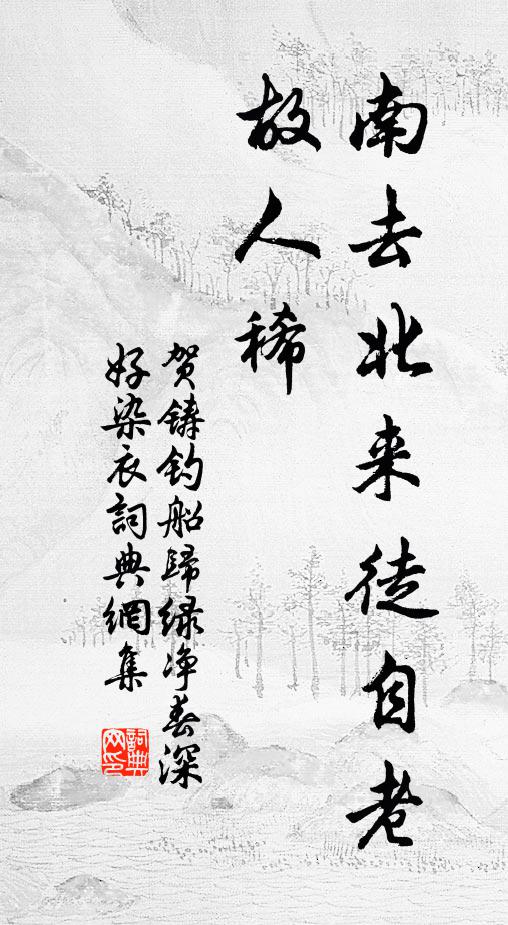 南去北来徒自老
故人稀
贺铸钓船歸绿净春深
好染衣詞典網集
詞典
网印